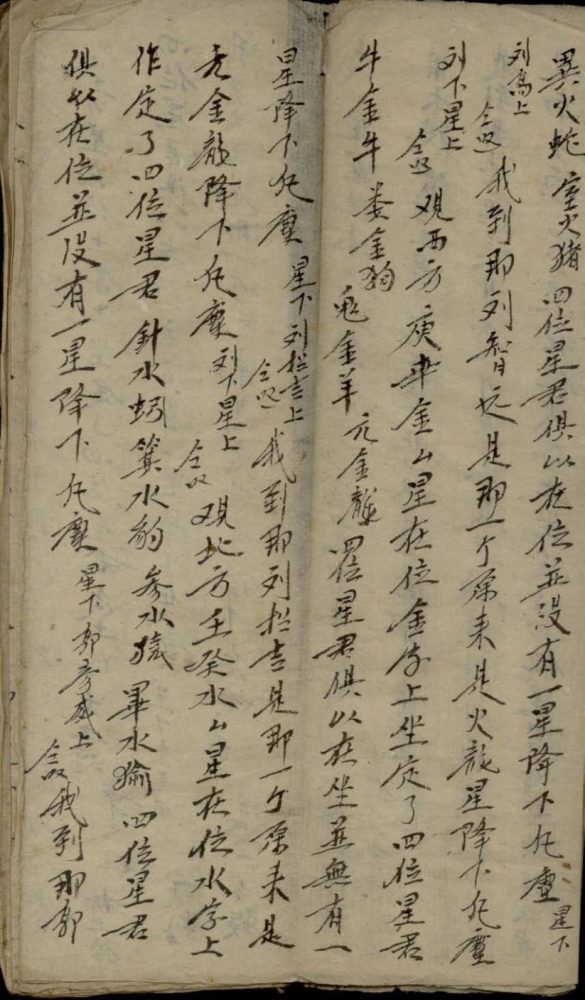 異火蛇 室火猪 四位星君俱以在位並没有一星降下凡塵 星下
列高上 我到那列智远是那一个原来是火龍星降下凡塵
列下星上 观西方庚辛金厶星在位金字上坐定了四位星君
牛金牛 娄金狗 鬼金羊 亢金龍 四位星君俱以在坐並無有一
星降下凡塵 星下列拦吉上 我到那列拦吉是那一个原来是
亢金龍降下凡塵 列下星上 观北方壬癸水厶星在位水字上
作定了四位星君 針水蚓 箕水豹 参水猿 畢水 四位星君
俱以在位並没有一星降下凡塵 星下郭彦威上 我到那郭